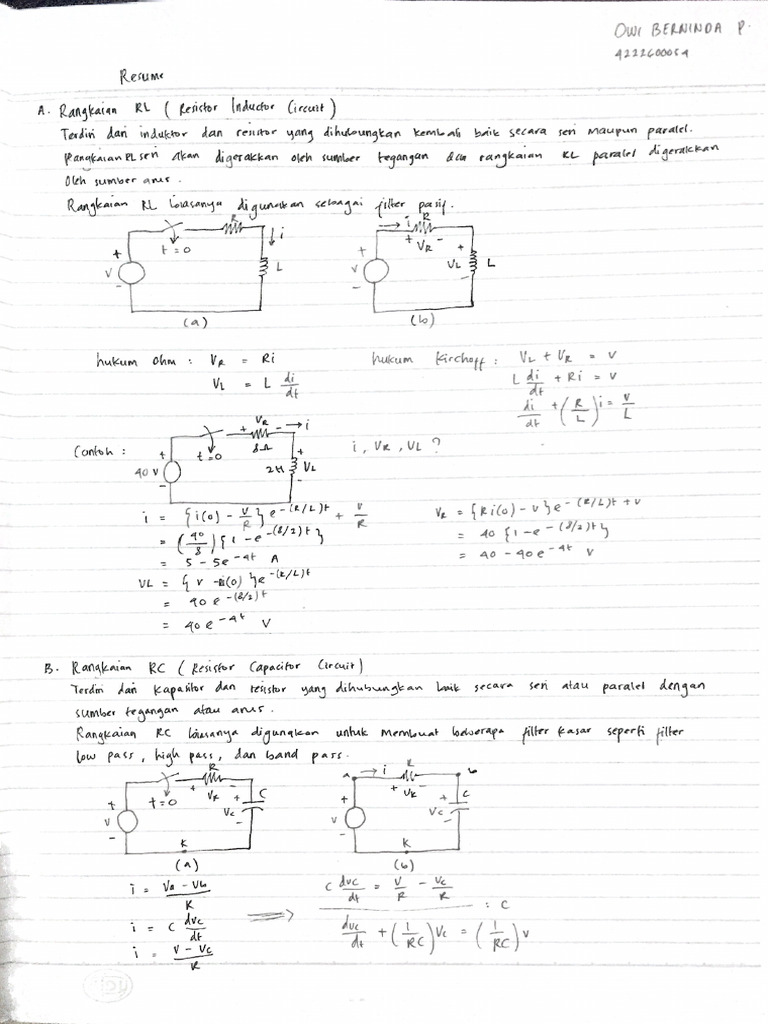 OWI BERNINDA P.
4222600054
Resume
A. Rangkaian RL ( Resistor Inductor Circuit )
Terdiri dari induktor dan resistor yang dihubungkan kembali baik secara seri maupun paralel.
Rangkaian RL seri akan digerakkan oleh sumber tegangan dan rangkaian RL paralel digerakkan
oleh sumber arus.
Rangkaian RL biasanya digunakan sebagai filter pasif.
R i
t = 0
+ V - L
(a)
i R
+ VR -
+ V - + VL - L
(b)
hukum Ohm : VR = Ri
VL = L di/dt
hukum Kirchoff : VL + VR = V
L di/dt + Ri = V
di/dt + (R/L) i = V/L
Contoh :
+ VR - i
8Ω
t=0
+ 40 V - 2H + VL -
i , VR , VL ?
i = {i(0) - V/R} e^-(R/L)t + V/R
= (40/8) {1 - e^-(8/2)t}
= 5 - 5e^-4t A
VL = {V - Ri(0)} e^-(R/L)t
= 40 e^-(8/2)t
= 40 e^-4t V
VR = {Ri(0) - V} e^-(R/L)t + V
= 40 {1 - e^-(8/2)t}
= 40 - 40e^-4t V
B. Rangkaian RC ( Resistor Capacitor Circuit )
Terdiri dari kapasitor dan resistor yang dihubungkan baik secara seri atau paralel dengan
sumber tegangan atau arus.
Rangkaian RC biasanya digunakan untuk membuat beberapa filter kasar seperti filter
low pass, high pass, dan band pass.
R
t=0 VR
+ V - + VC - C
K
(a)
a i R b
+ VR -
+ V - + VC - C
K
(b)
i = Va - Vb / R
i = C dvc/dt
i = V - Vc / R
⟹
C dvc/dt = V/R - Vc/R
: C
dvc/dt + (1/RC) Vc = (1/RC) V